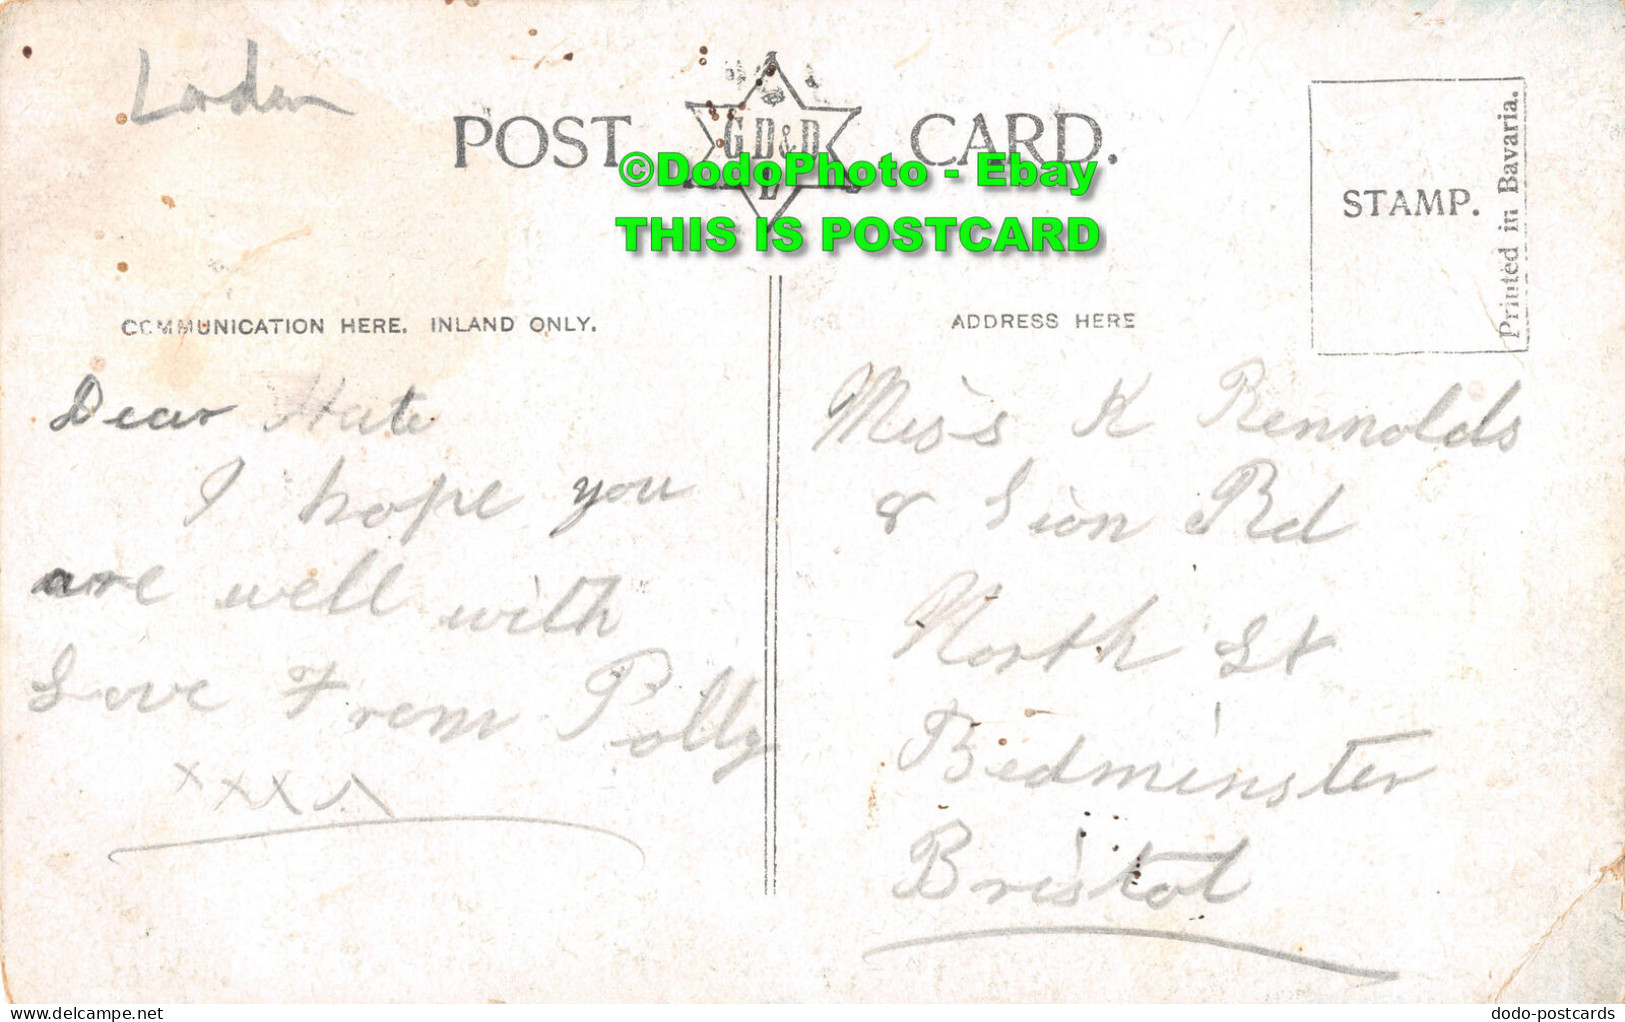 London
POST CARD.
G.D&D
L
©DodoPhoto - Ebay
THIS IS POSTCARD
STAMP.
Printed in Bavaria.
COMMUNICATION HERE. INLAND ONLY.
ADDRESS HERE
Dear Kate
I hope you
are well with
Love From Polly
xxxx
Miss K Rennolds
8 Sion Rd
North St
Bedminster
Bristol
www.delcampe.net
dodo-postcards